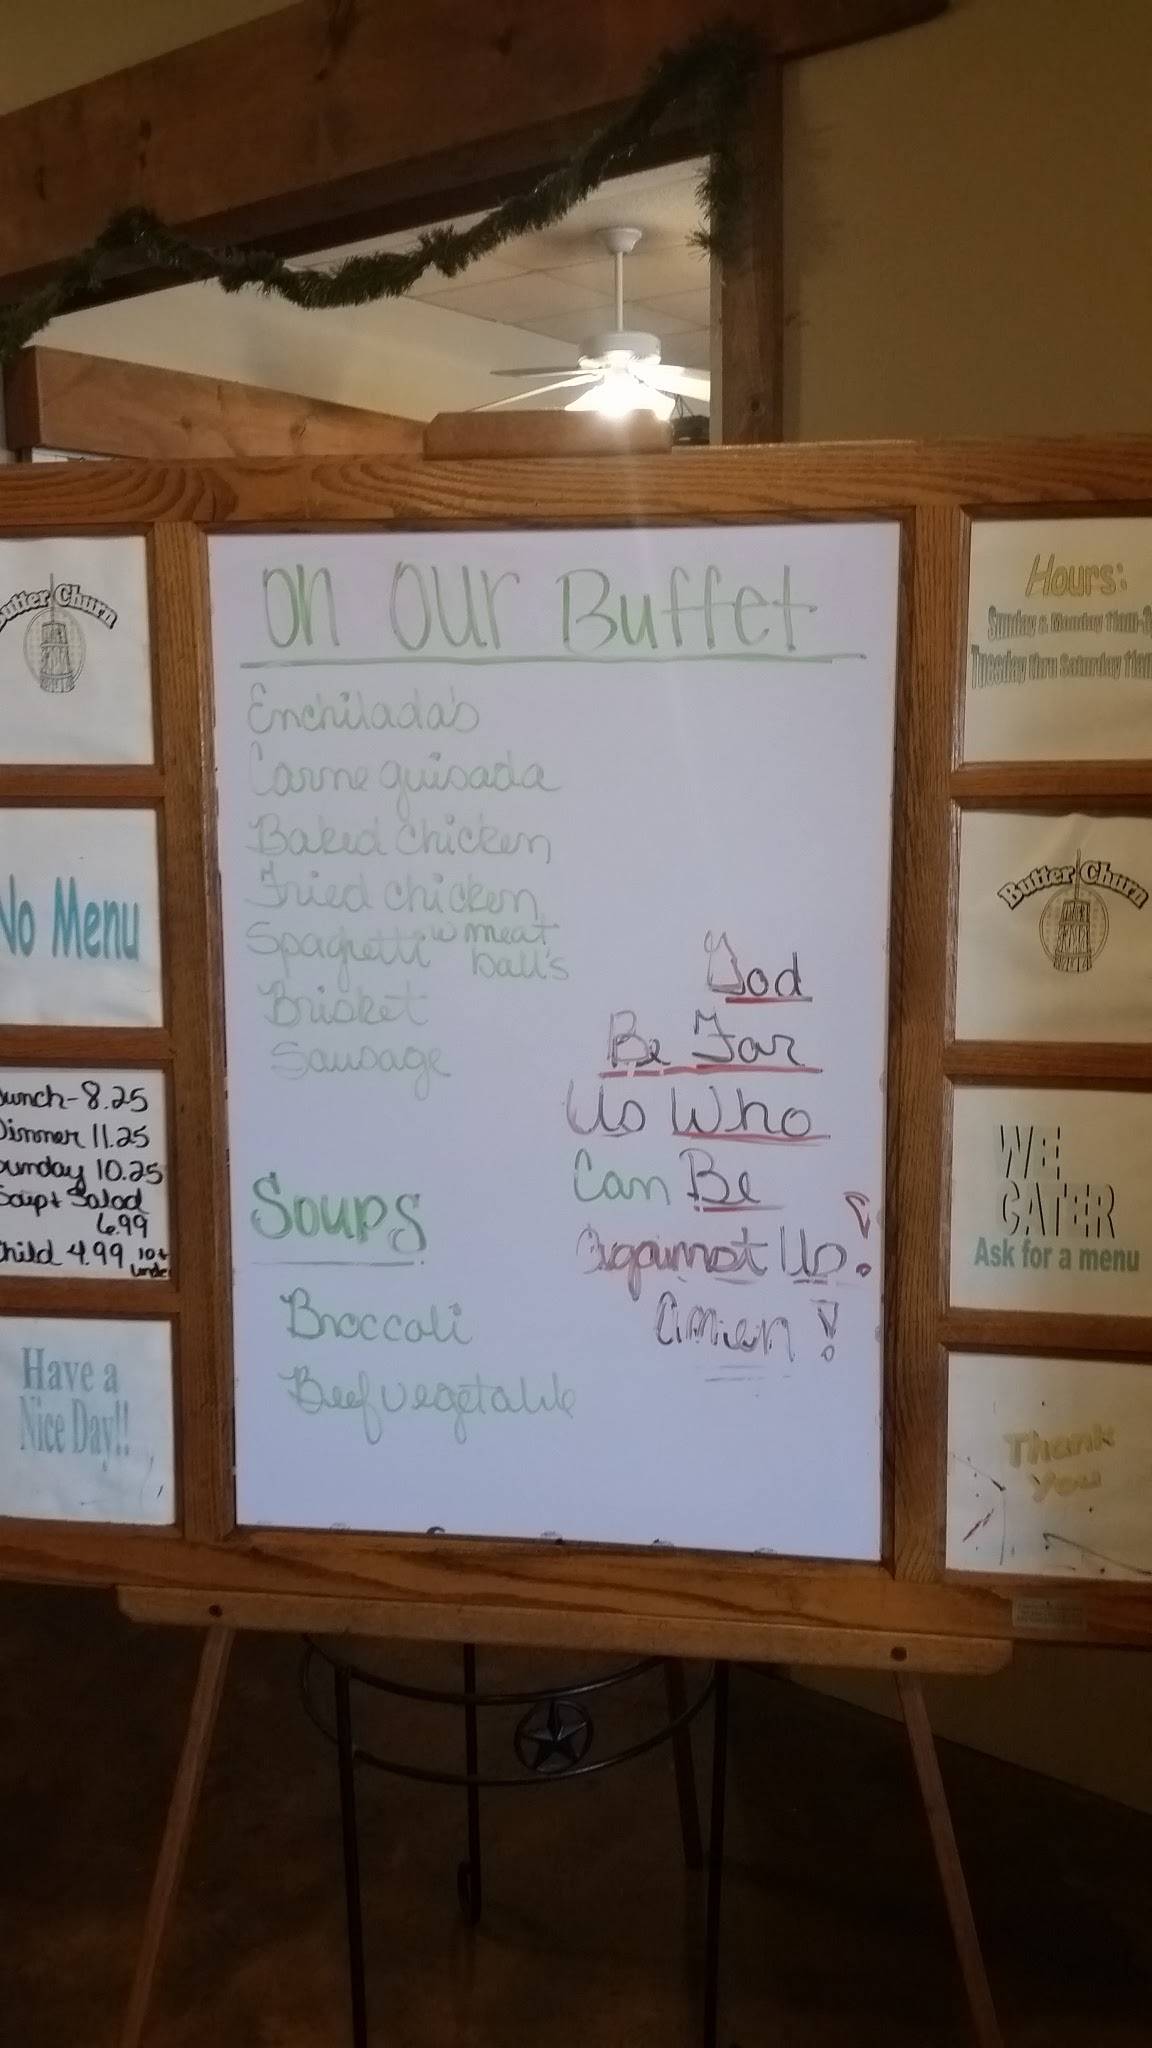 Butter Churn
No Menu
Lunch - 8.25
Dinner 11.25
Sunday 10.25
Soup + Salad
6.99
Child 4.99 10 +
under
Have a
Nice Day!!
On Our Buffet
Enchilada's
Carne guisada
Baked chicken
Fried chicken
Spaghetti w meat
ball's
Brisket
Sausage
Soups
Broccoli
Beef vegetable
God
Be For
Us Who
Can Be
against Us!
Amen!
Hours:
Sunday & Monday 11am-
Tuesday thru Saturday 11am
Butter Churn
WE
CATER
Ask for a menu
Thank
You